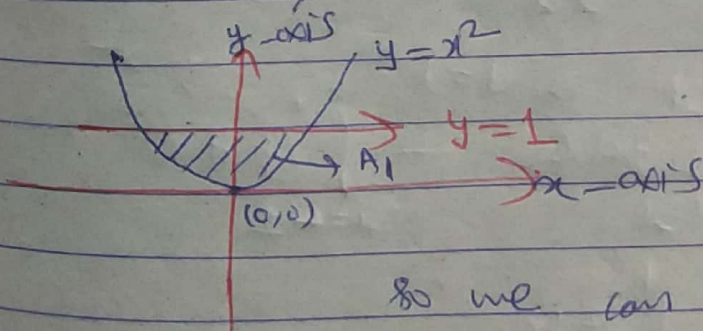 y-axis
y = x²
y = 1
A₁
x-axis
(0,0)
so we can